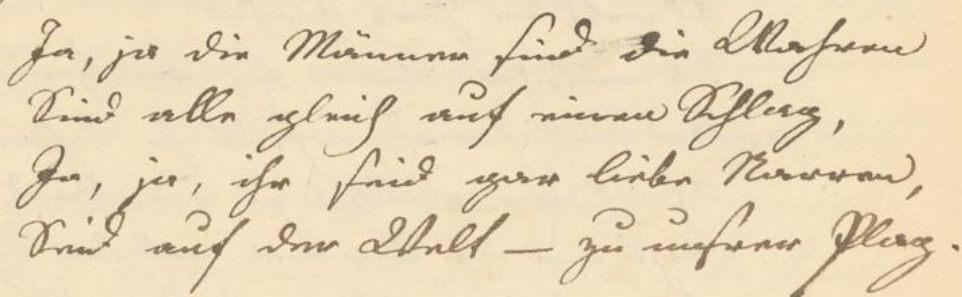 Ja, ja die Männer sind die Wahren
Sind alle gleich auf einen Schlag,
Ja, ja, ihr seid gar liebe Narren,
Seid auf der Welt — zu unsrer Plag.